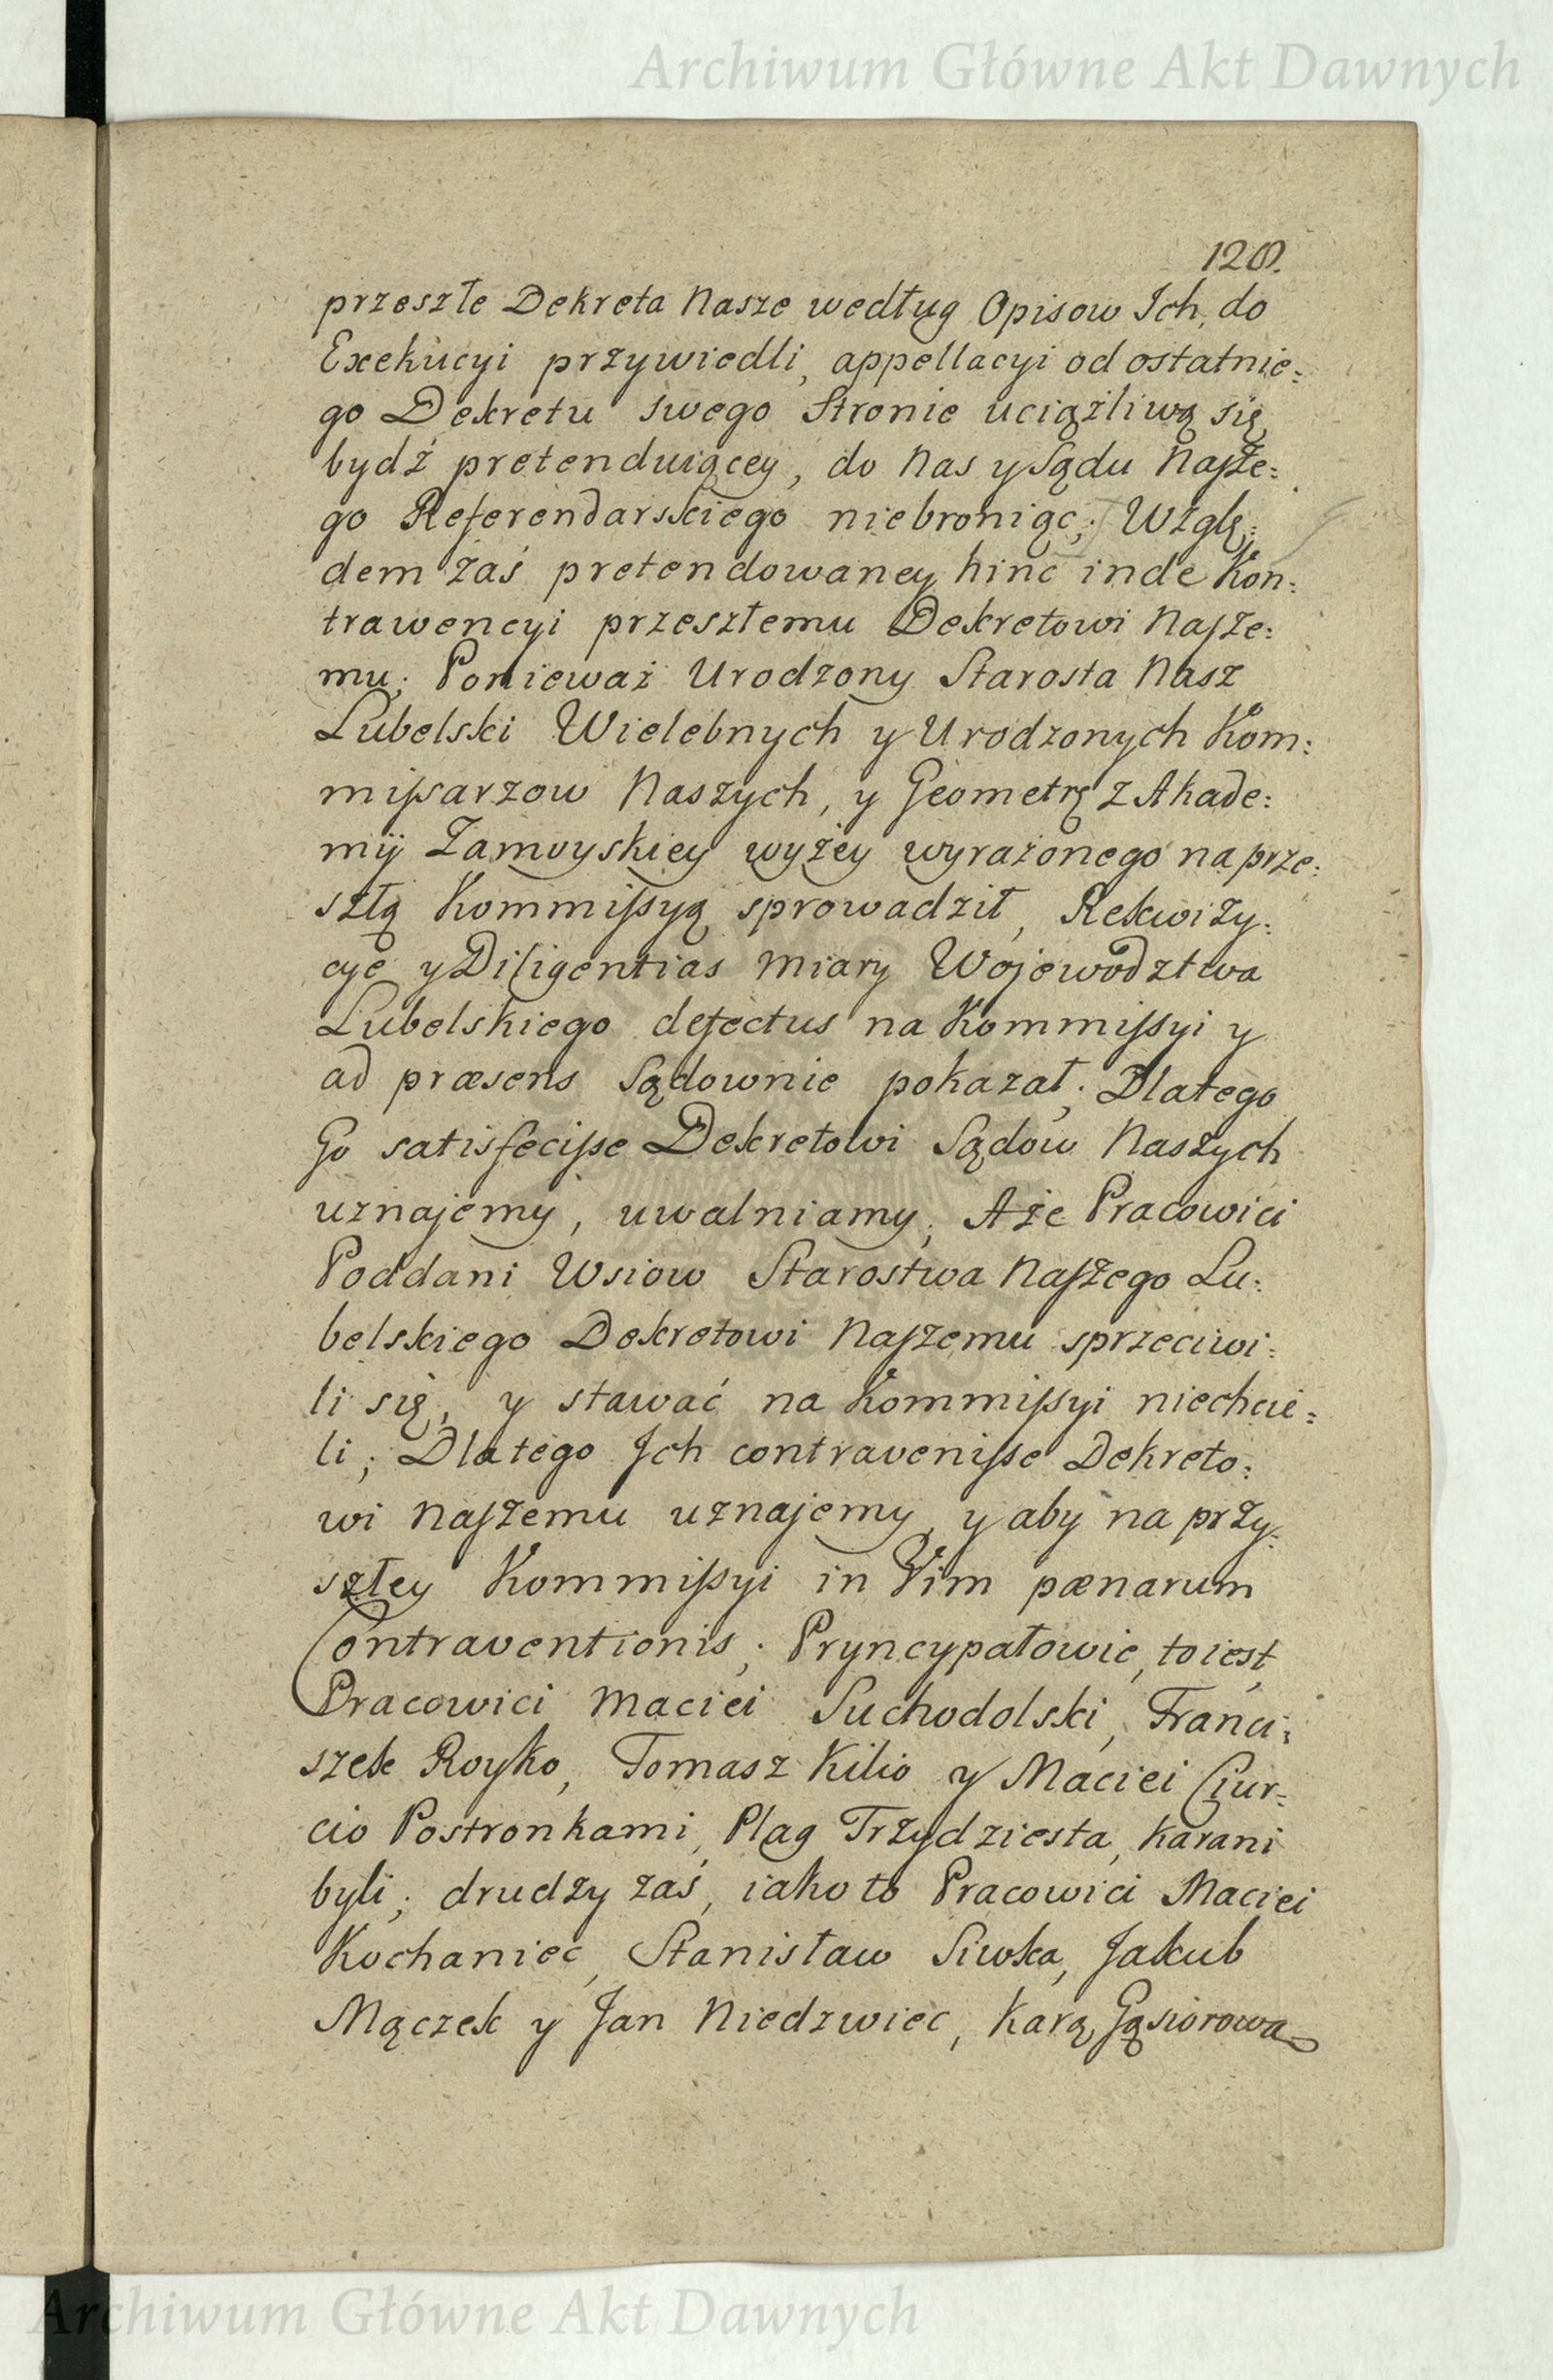 Archiwum Główne Akt Dawnych
128.
przeszłe Dekreta Nasze według Opisow Ich, do
Exekucyi przywiedli, appellacyi od ostatnie:
go Dekretu swego Stronie uciążliwą się
bydź pretenduiącey, do Nas y Sądu Nasze:
go Referendarskiego niebroniąc; Wzglę:
dem zaś pretendowaney hinc inde Kon:
trawencyi przeszłemu Dekretowi Nasze:
mu; Ponieważ Urodzony Starosta Nasz
Lubelski Wielebnych y Urodzonych Kom:
missarzow Naszych, y Geometrę z Akade:
mij Zamoyskiey wyżey wyrażonego na prze:
szłą Kommissyą sprowadził, Rekwizy:
cye y Diligentias miary Wojewodztwa
Lubelskiego defectus na Kommissyi y
ad præsens Sądownie pokazał; Dlatego
Go satisfecisse Dekretowi Sądow Naszych
uznajemy, uwalniamy; A że Pracowici
Poddani Wsiow Starostwa Naszego Lu:
belskiego Dekretowi Naszemu sprzeciwi:
li się, y stawać na Kommissyi niechcie:
li; Dlatego Ich contravenisse Dekreto:
wi Naszemu uznajemy, y aby na przy:
szłey Kommissyi in Vim pænarum
Contraventionis; Pryncypałowie, to iest
Pracowici Maciei Suchodolski, Franci:
szek Royko, Tomasz Kilio y Maciei Ciur:
cio Postronkami, Plag Trzydziesta, karani
byli; drudzy zaś, iako to Pracowici Maciei
Kochaniec, Stanisław Siwka, Jakub
Mączek y Jan Niedzwiec, karą Gąsiorowa
Archiwum Główne Akt Dawnych